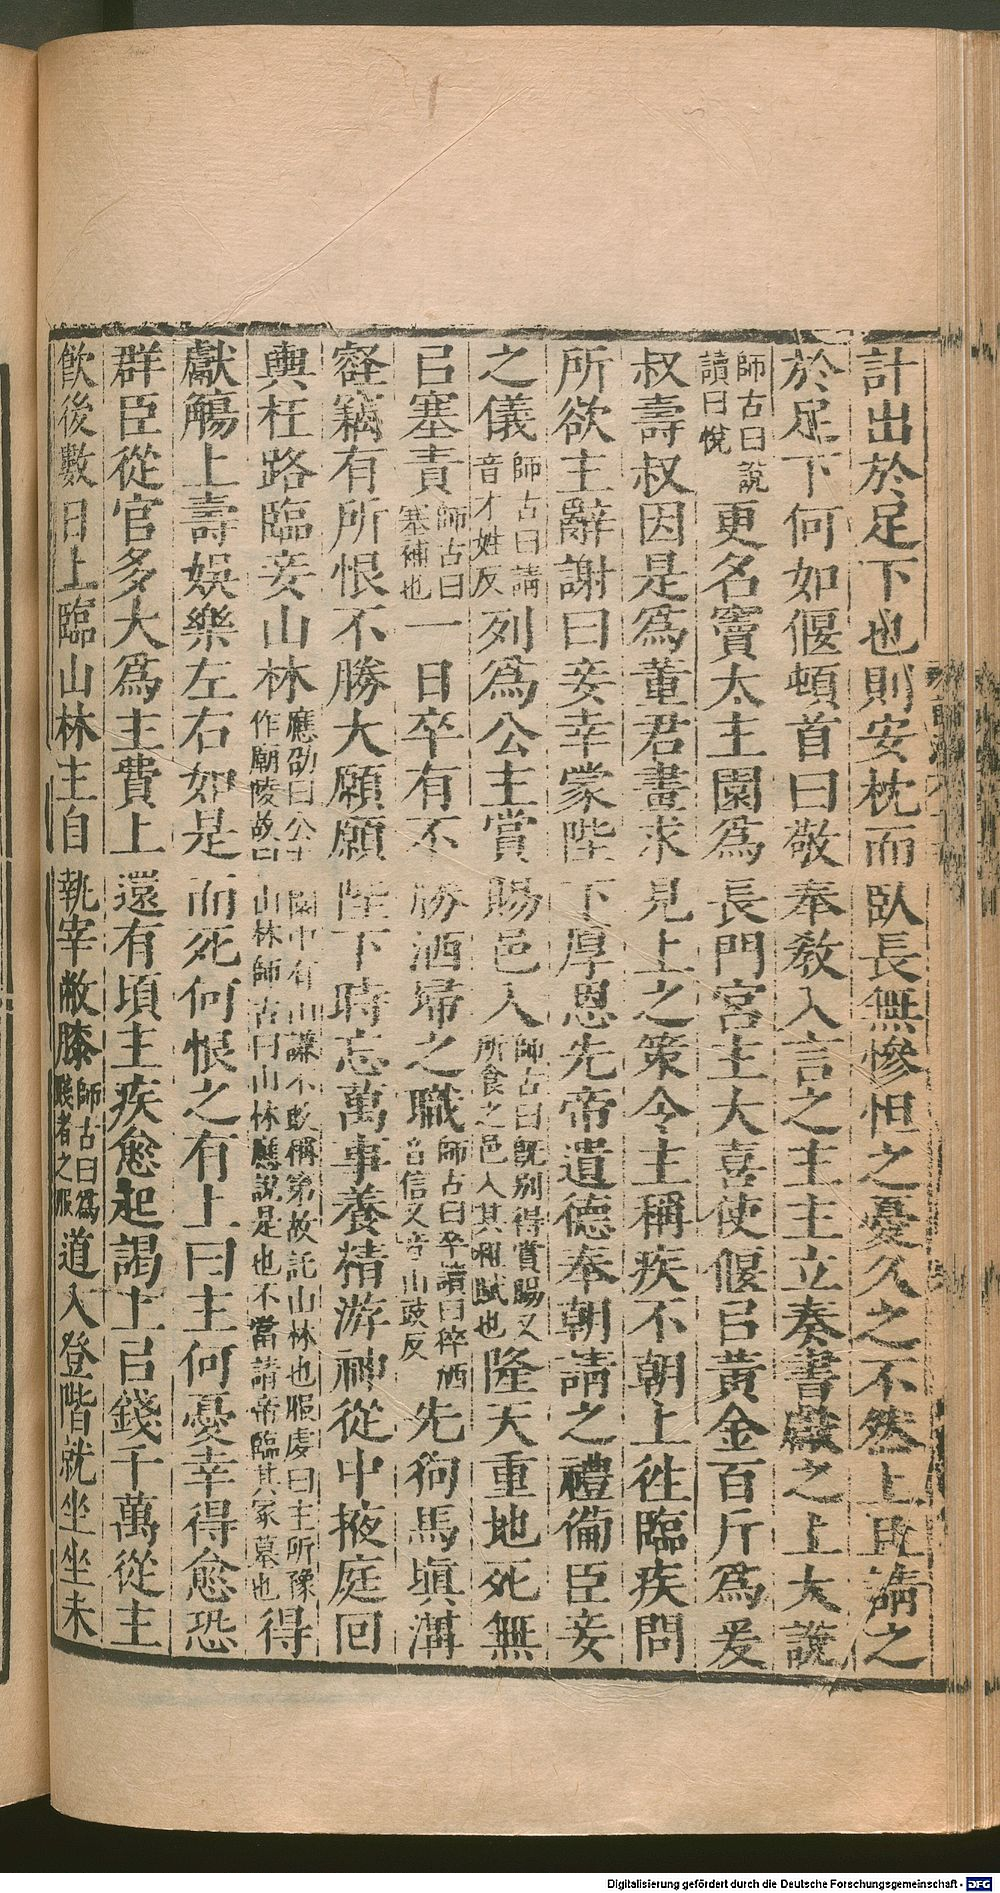 計出於足下也則安枕而臥長無慘怛之憂久之不然上且請之
於足下何如偃頓首曰敬奉教入言之主主立奏書獻之上大說
師古曰說讀曰悅更名竇太主園爲長門宮主大喜使偃㠯黃金百斤爲爰
叔壽叔因是爲董君畫求見上之策令主稱疾不朝上往臨疾問
所欲主辭謝曰妾幸蒙陛下厚恩先帝遺德奉朝請之禮備臣妾
之儀師古曰請音才姓反列爲公主賞賜邑入師古曰旣別得賞賜又所食之邑入其租賦也隆天重地死無
㠯塞責師古曰塞補也一日卒有不勝洒埽之職師古曰卒讀曰猝洒音信又音山豉反先狗馬塡溝
壑竊有所恨不勝大願願陛下時忘萬事養精游神從中掖庭回
輿枉路臨妾山林應劭曰公主園中有山謙不敢稱第故託山林也服虔曰主所豫作廟陵故曰山林師古曰山林應說是也不當請帝臨其冢墓也得
獻觴上壽娛樂左右如是而死何恨之有上曰主何憂幸得愈恐
群臣從官多大爲主費上還有頃主疾愈起謁上㠯錢千萬從主
飲後數日上臨山林主自執宰敝膝師古曰爲賤者之服道入登階就坐坐未
Digitalisierung gefördert durch die Deutsche Forschungsgemeinschaft - DFG